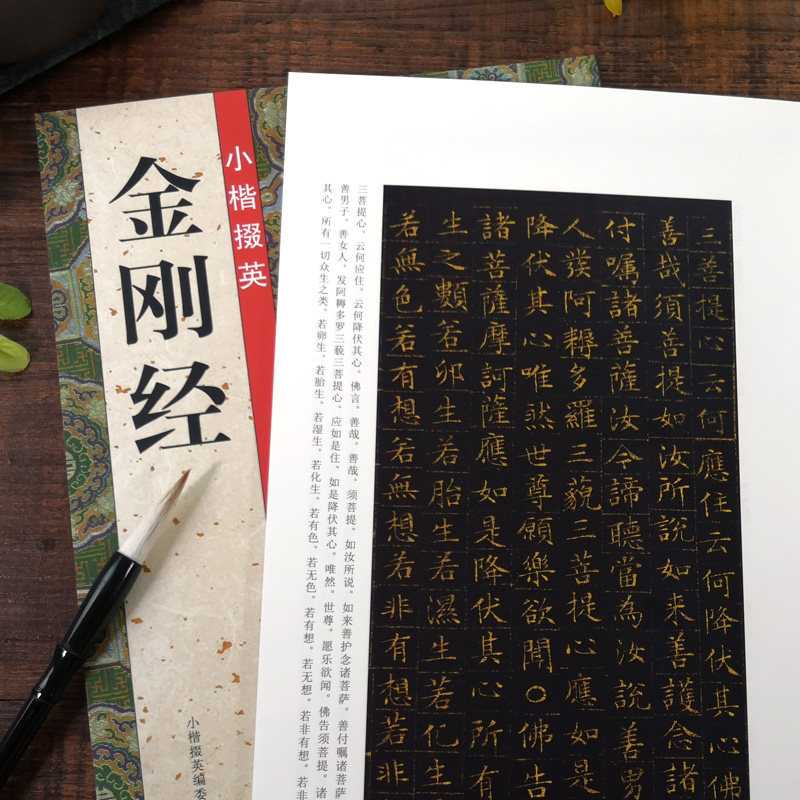 小楷掇英
金刚经
小楷掇英编委
三菩提心云何應住云何降伏其心佛
善哉須菩提如汝所説如来善護念諸
付囑諸菩薩汝今諦聽當為汝説善男
人發阿耨多羅三藐三菩提心應如是
降伏其心唯然世尊願樂欲聞○佛告
諸菩薩摩訶薩應如是降伏其心所有
生之類若卵生若胎生若濕生若化生
若無色若有想若無想若非有想若非
三菩提心。云何应住。云何降伏其心。佛言。善哉。善哉。须菩提。如汝所说。如来善护念诸菩萨。善付嘱诸菩萨
善男子。善女人。发阿耨多罗三藐三菩提心。应如是住。如是降伏其心。唯然。世尊。愿乐欲闻。佛告须菩提。诸
其心。所有一切众生之类。若卵生。若胎生。若湿生。若化生。若有色。若无色。若有想。若无想。若非有想。若非